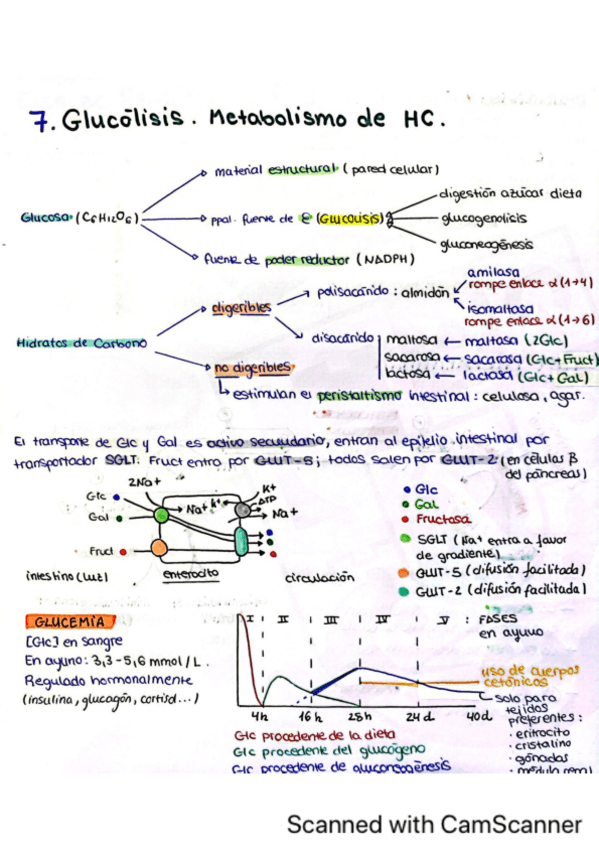 7. Glucólisis. Metabolismo de HC.
material estructural (pared celular)
Glucosa (C6H12O6)
ppal. fuente de e (GLUCOLISIS)
digestión azúcar dieta
glucogenolisis
gluconeogénesis
fuente de poder reductor (NADPH)
Hidratos de Carbono
digeribles
polisacárido: almidón
amilasa
rompe enlace α(1→4)
isomaltasa
rompe enlace α(1→6)
disacárido
maltosa ← maltasa (2Glc)
sacarosa ← sacarasa (Glc+Fruct)
lactosa ← lactasa (Glc+Gal)
no digeribles
↳ estimulan el peristaltismo intestinal: celulosa, agar.
El transporte de Glc y Gal es activo secundario, entran al epitelio intestinal por
transportador SGLT. Fruct entra por GLUT-5; todos salen por GLUT-2 (en células β
del páncreas)
2Na+
Glc
Gal
Fruct
Na+
K+
K+
ATP
Na+
intestino (luz)
enterocito
circulación
Glc
Gal
Fructosa
SGLT (Na+ entra a favor
de gradiente)
GLUT-5 (difusión facilitada)
GLUT-2 (difusión facilitada)
GLUCEMIA
[Glc] en sangre
En ayuno: 3,3-5,6 mmol/L.
Regulado hormonalmente
(insulina, glucagón, cortisol...)
I II III IV V : FASES
en ayuno
uso de cuerpos
cetónicos
solo para
tejidos
preferentes:
· eritrocito
· cristalino
· gónadas
· médula renal
4h 16h 28h 24d 40d
Glc procedente de la dieta
Glc procedente del glucógeno
Glc procedente de gluconeogénesis
Scanned with CamScanner